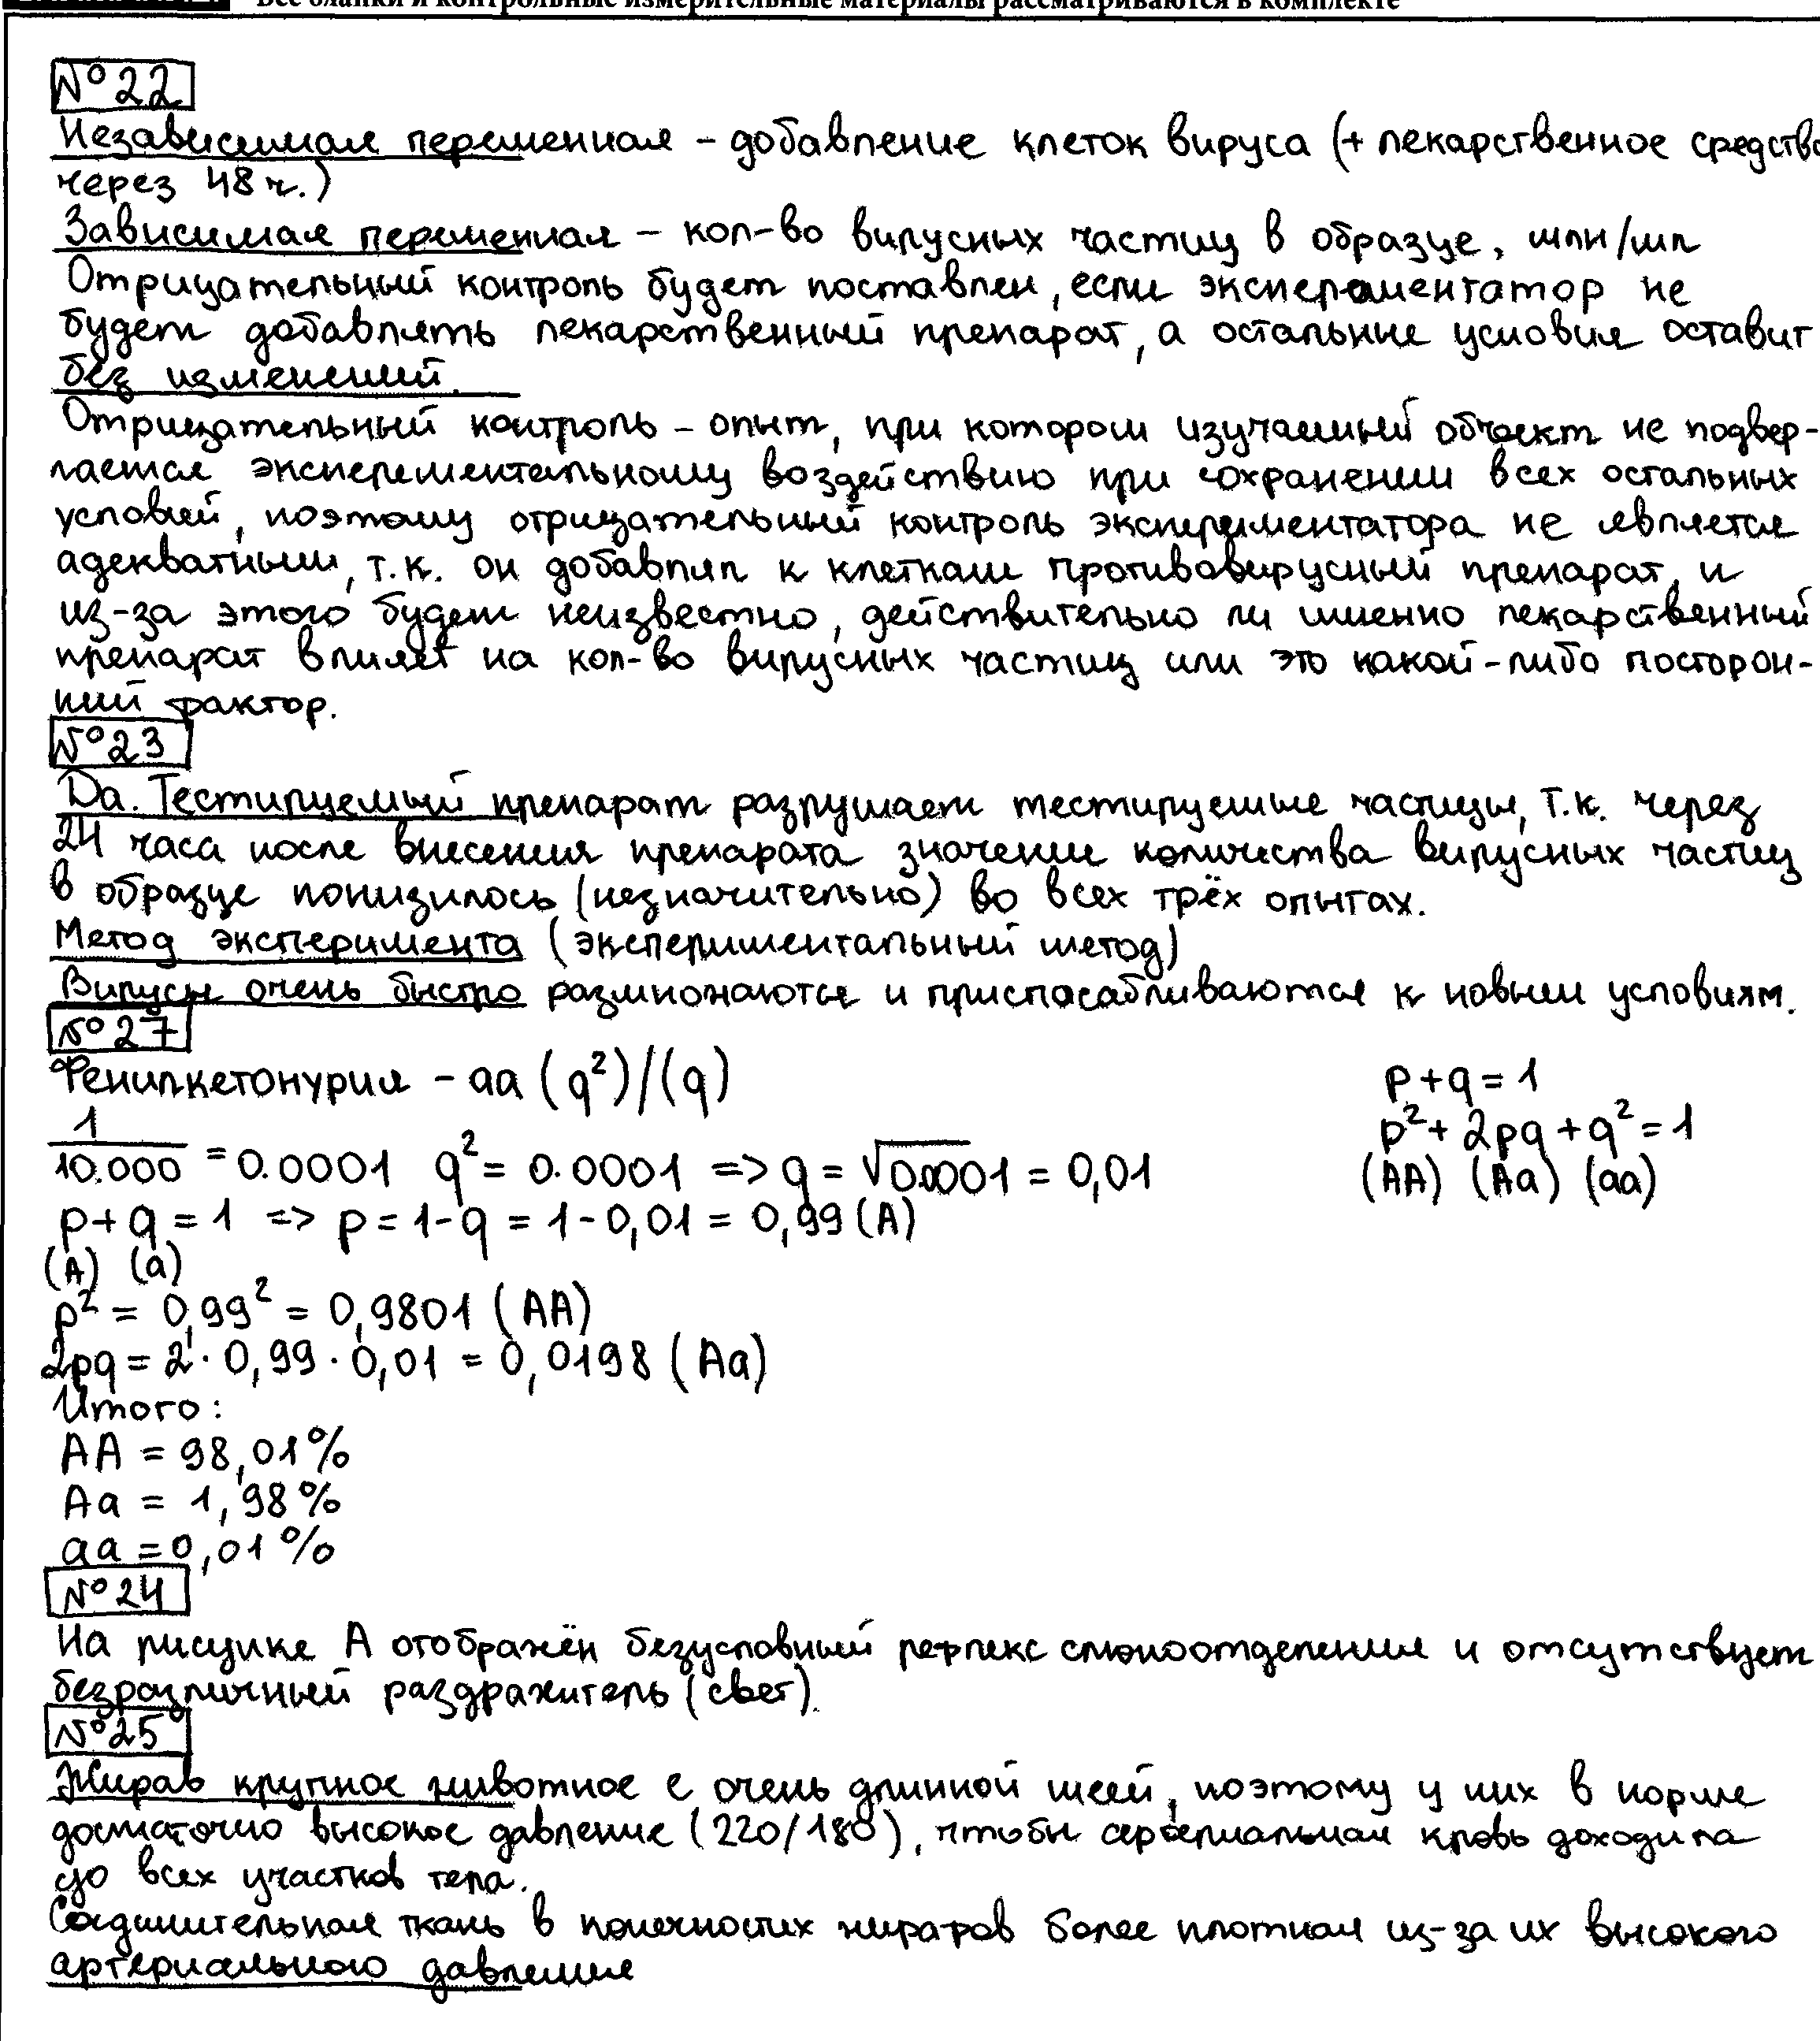 Все бланки и контрольные измерительные материалы рассматриваются в комплекте
№22
Независимая переменная – добавление клеток вируса (+ лекарственное средство
через 48 ч.)
Зависимая переменная – кол-во вирусных частиц в образце, млн/мл
Отрицательный контроль будет поставлен, если эксперементатор не
будет добавлять лекарственный препарат, а остальные условия оставит
без изменений.
Отрицательный контроль – опыт, при котором изучаемый объект не подвер-
гается эксперементальному воздействию при сохранении всех остальных
условий, поэтому отрицательный контроль экспериментатора не является
адекватным, т.к. он добавлял к клеткам противовирусный препарат, и
из-за этого будет неизвестно, действительно ли именно лекарственный
препарат влияет на кол-во вирусных частиц или это какой-либо посторон-
ний фактор.
№23
Да. Тестируемый препарат разрушает тестируемые частицы, т.к. через
24 часа после внесения препарата значение количества вирусных частиц
в образце понизилось (незначительно) во всех трёх опытах.
Метод эксперимента (экспериментальный метод)
Вирусы очень быстро размножаются и приспосабливаются к новым условиям.
№27
Фенилкетонурия – аа (q²)/(q)
p+q=1
p²+2pq+q²=1
(AA) (Aa) (aa)
1/10.000 = 0.0001 q² = 0.0001 => q = √0.0001 = 0,01
p+q = 1 => p = 1-q = 1-0,01 = 0,99 (A)
(A) (a)
p² = 0,99² = 0,9801 (AA)
2pq = 2·0,99·0,01 = 0,0198 (Aa)
Итого:
AA = 98,01%
Aa = 1,98%
aa = 0,01%
№24
На рисунке А отображён безусловный рефлекс слюноотделения и отсутствует
безразличный раздражитель (свет).
№25
Жираф крупное животное с очень длинной шеей, поэтому у них в норме
достаточно высокое давление (220/180), чтобы кровь доходила
до всех участков тела.
Соединительная ткань в конечностях жирафов более плотная из-за их высокого
артериального давления